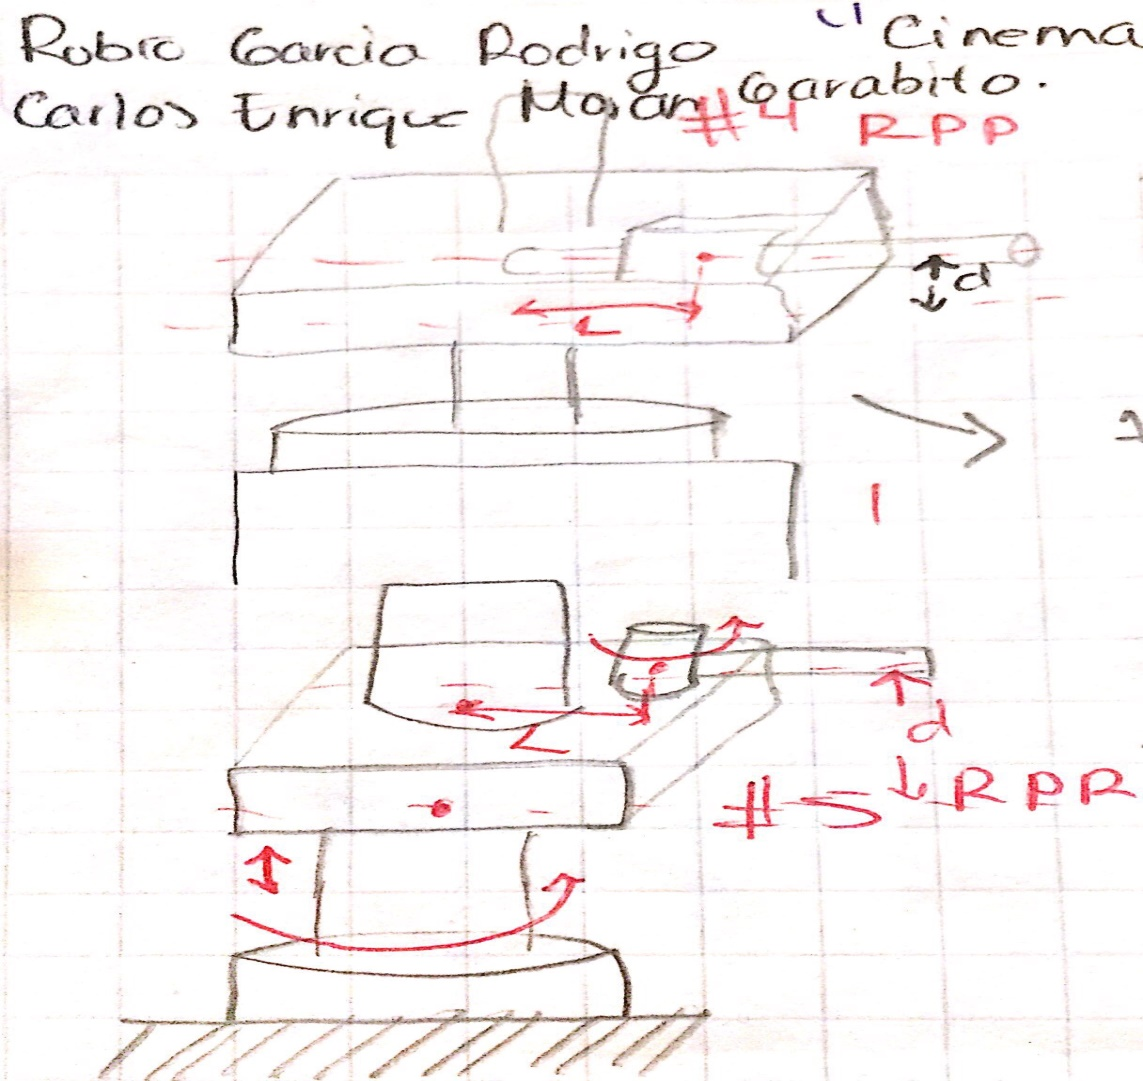 Rubio Garcia Rodrigo "Cinema
Carlos Enrique Moran Garabito.
#4 RPP
d
L
1
L
d
#5 RPR